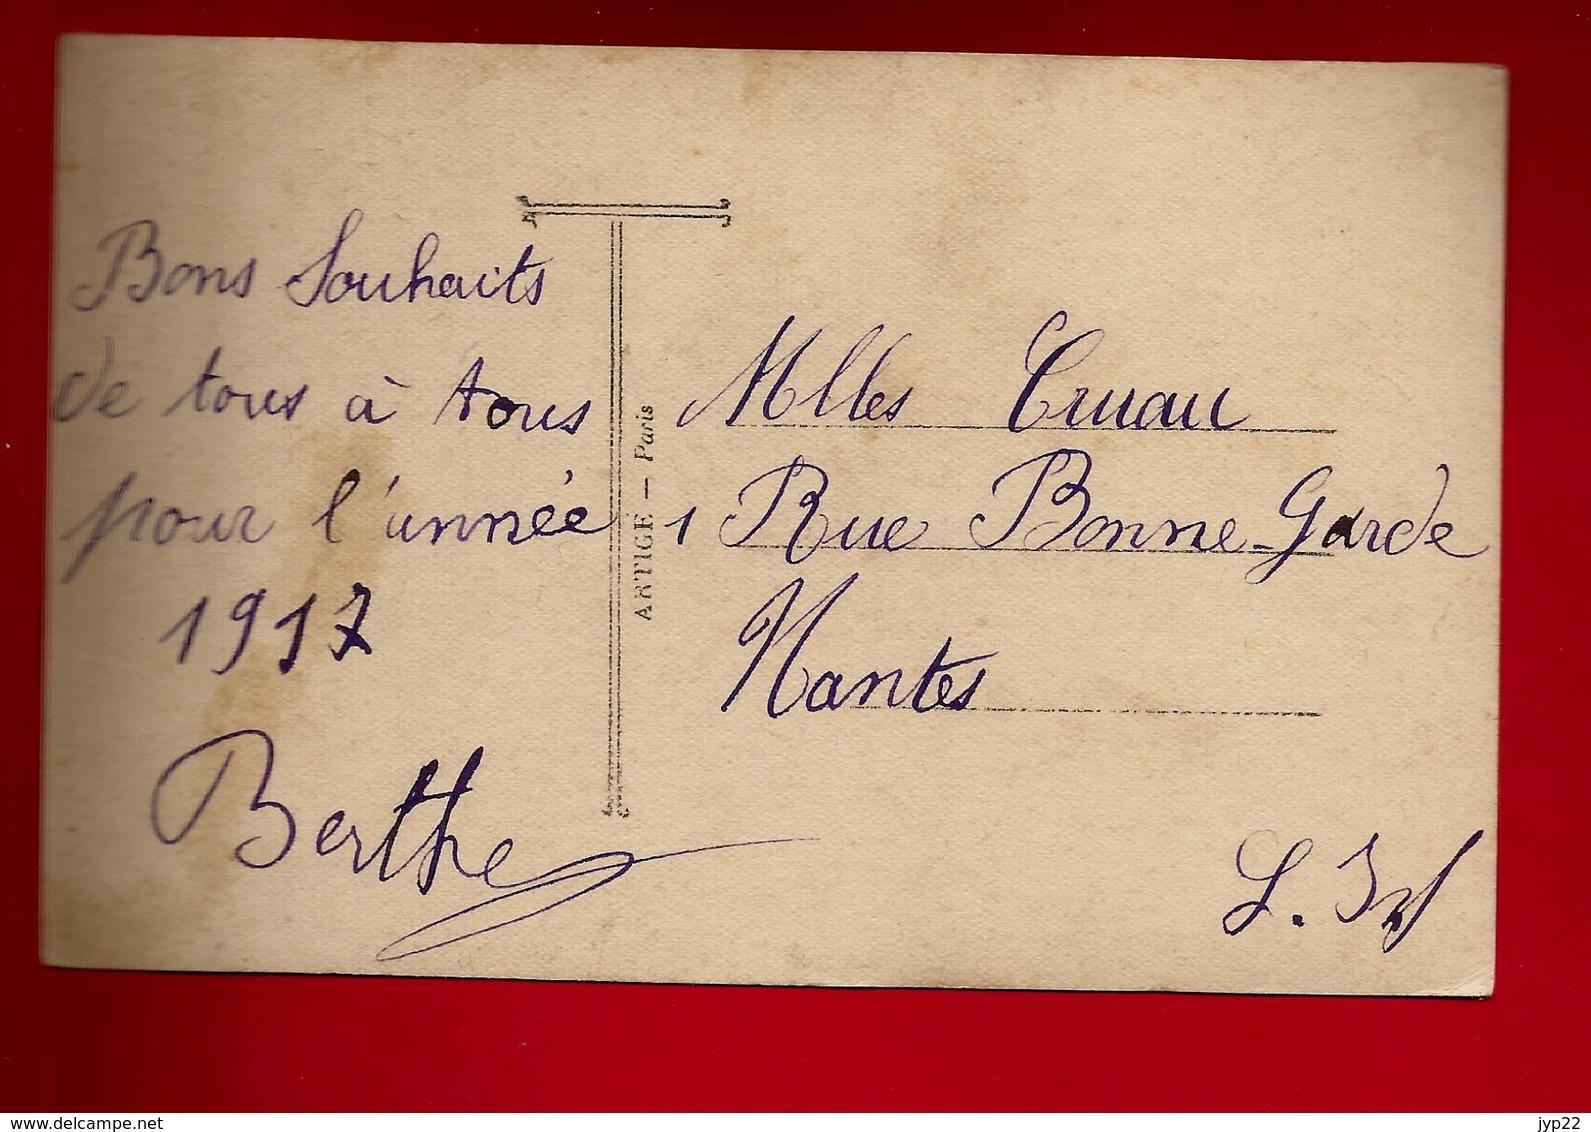 Bons Souhaits
de tous à tous
pour l'année
1917
Berthe
ARTIGE — Paris
Mlles Cruau
1 Rue Bonne-Garde
Nantes
L. Inf
www.delcampe.net
jyp22